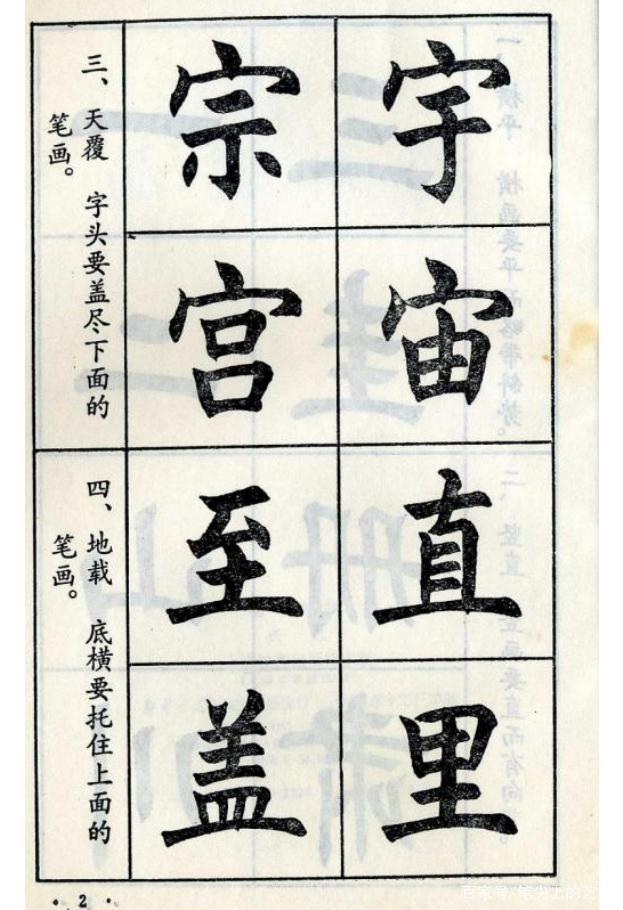 宇
宙
宗
宫
三、天覆 字头要盖尽下面的
笔画。
直
里
至
盖
四、地载 底横要托住上面的
笔画。
·2·
百家号/笔尖上的艺